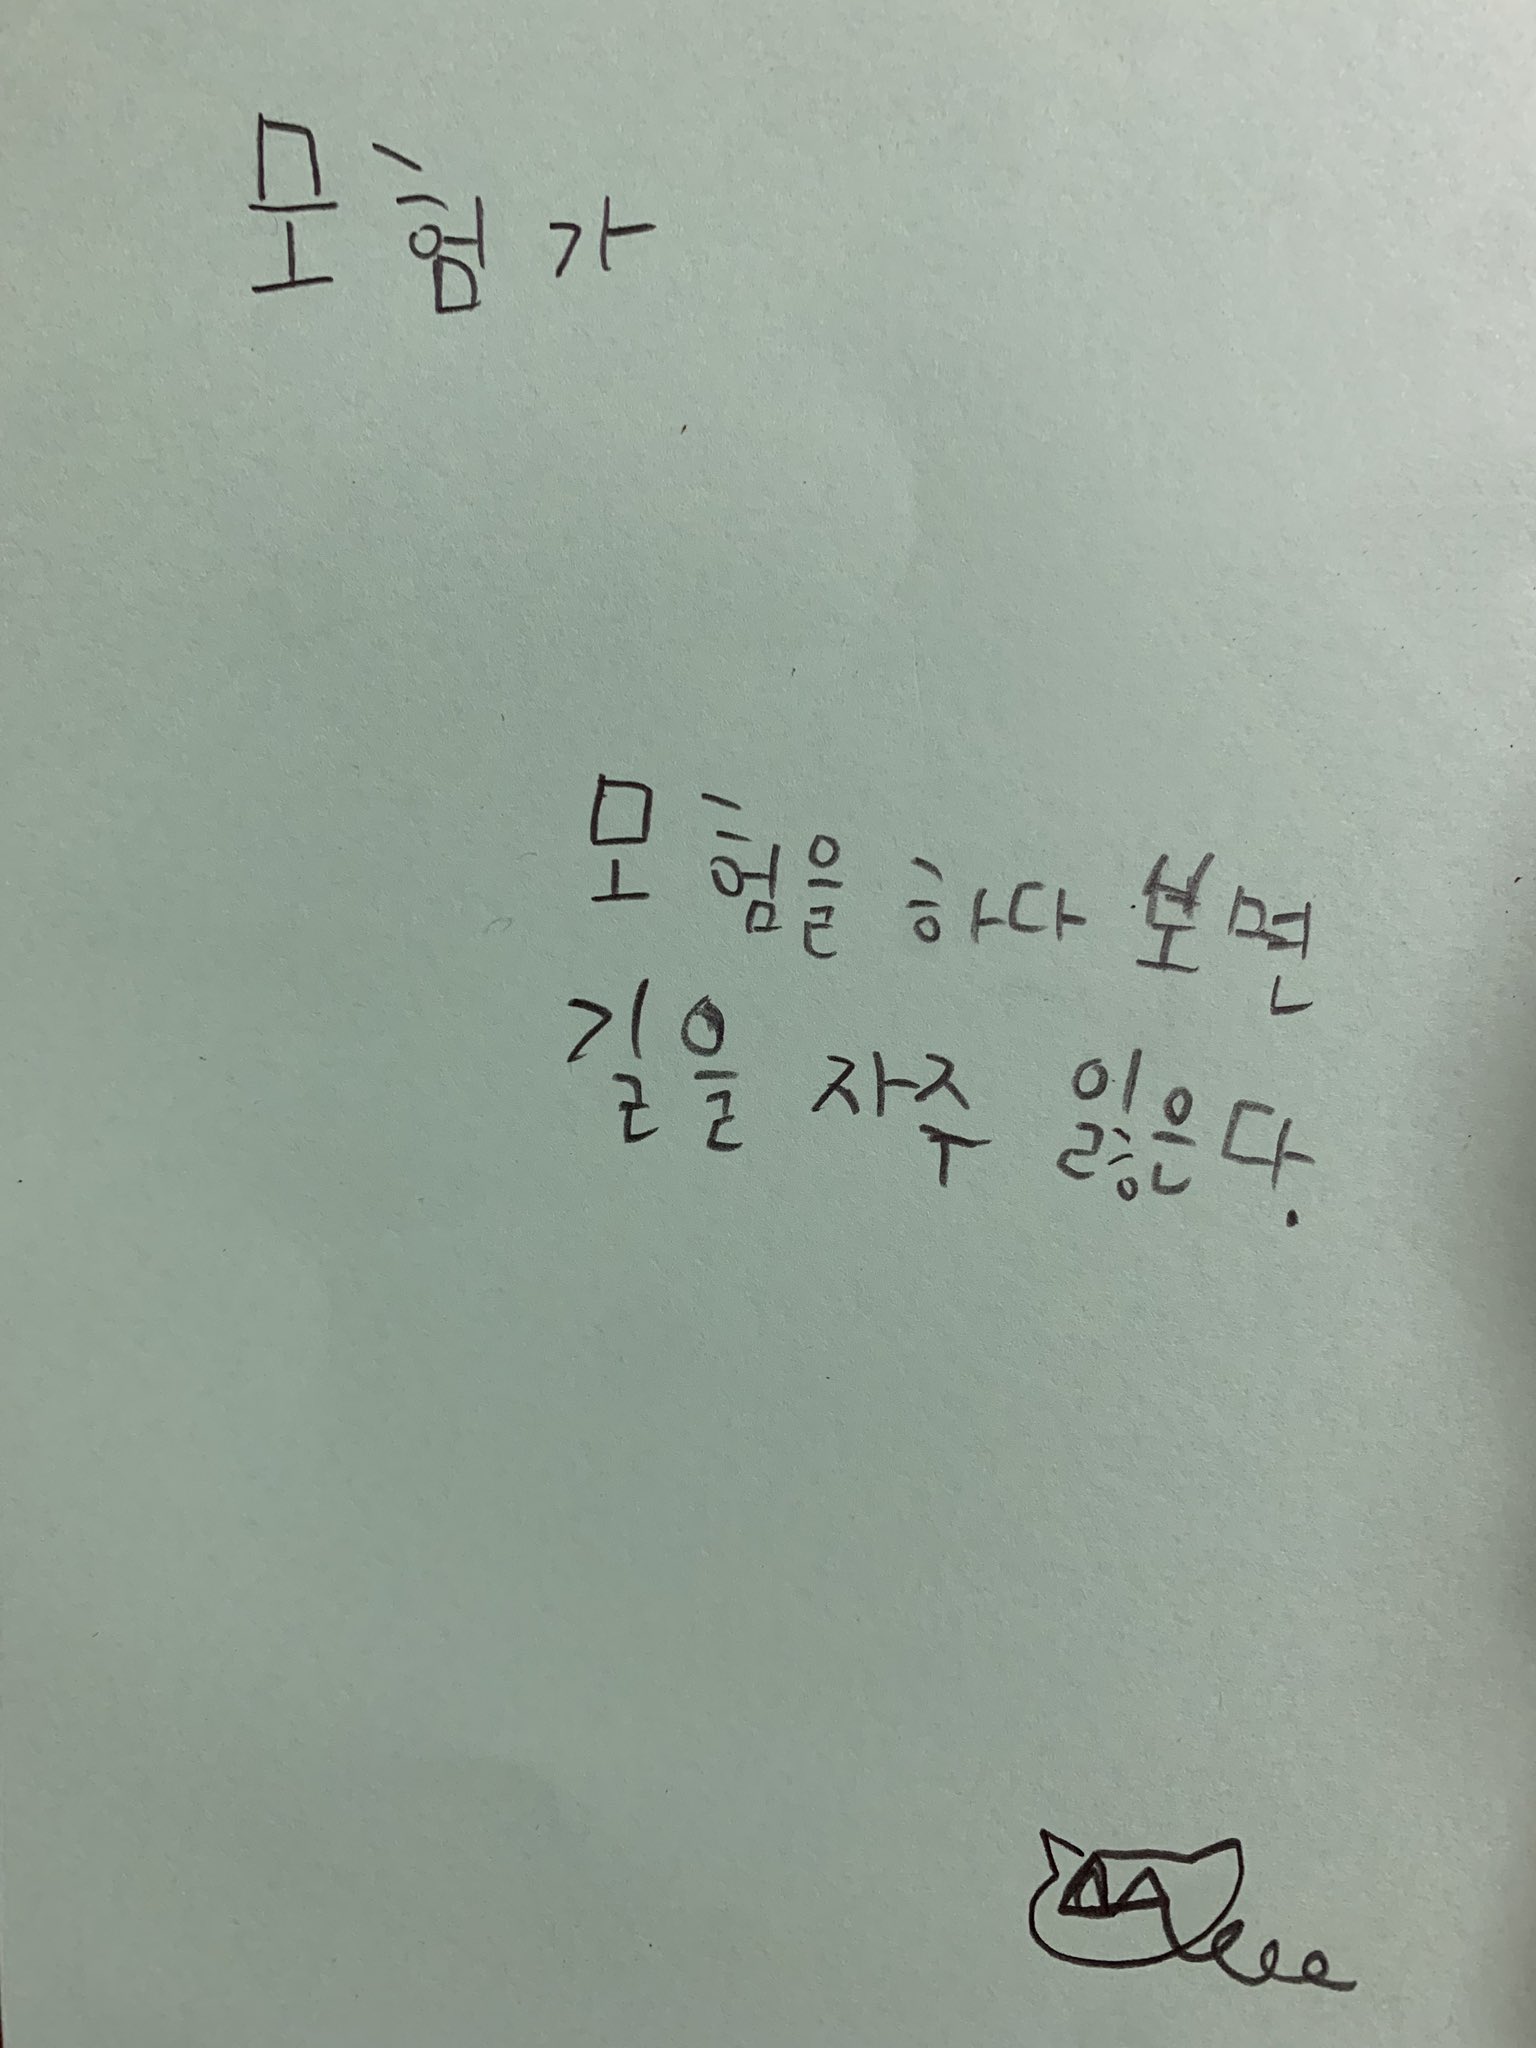 모험가
모험을 하다 보면
길을 자주 잃은다.